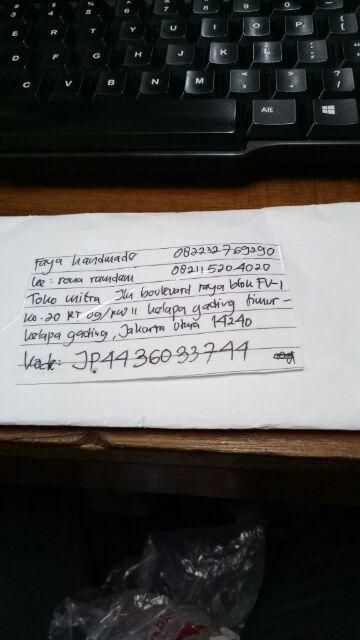 $ 4 % 5 6 & 7 * 8 ( 9 ) 0
E R T Y U I O P {
D F G H J K L : "
C V B N M < > ?
Alt
Faya handmade 082232769290
ke: rona ramdani 082115204020
Toko mitra Jln boulevard raya blok FV-1
no. 20 RT 09/RW 11 kelapa gading timur -
kelapa gading, Jakarta Utara 14240
kode: JP4436033744